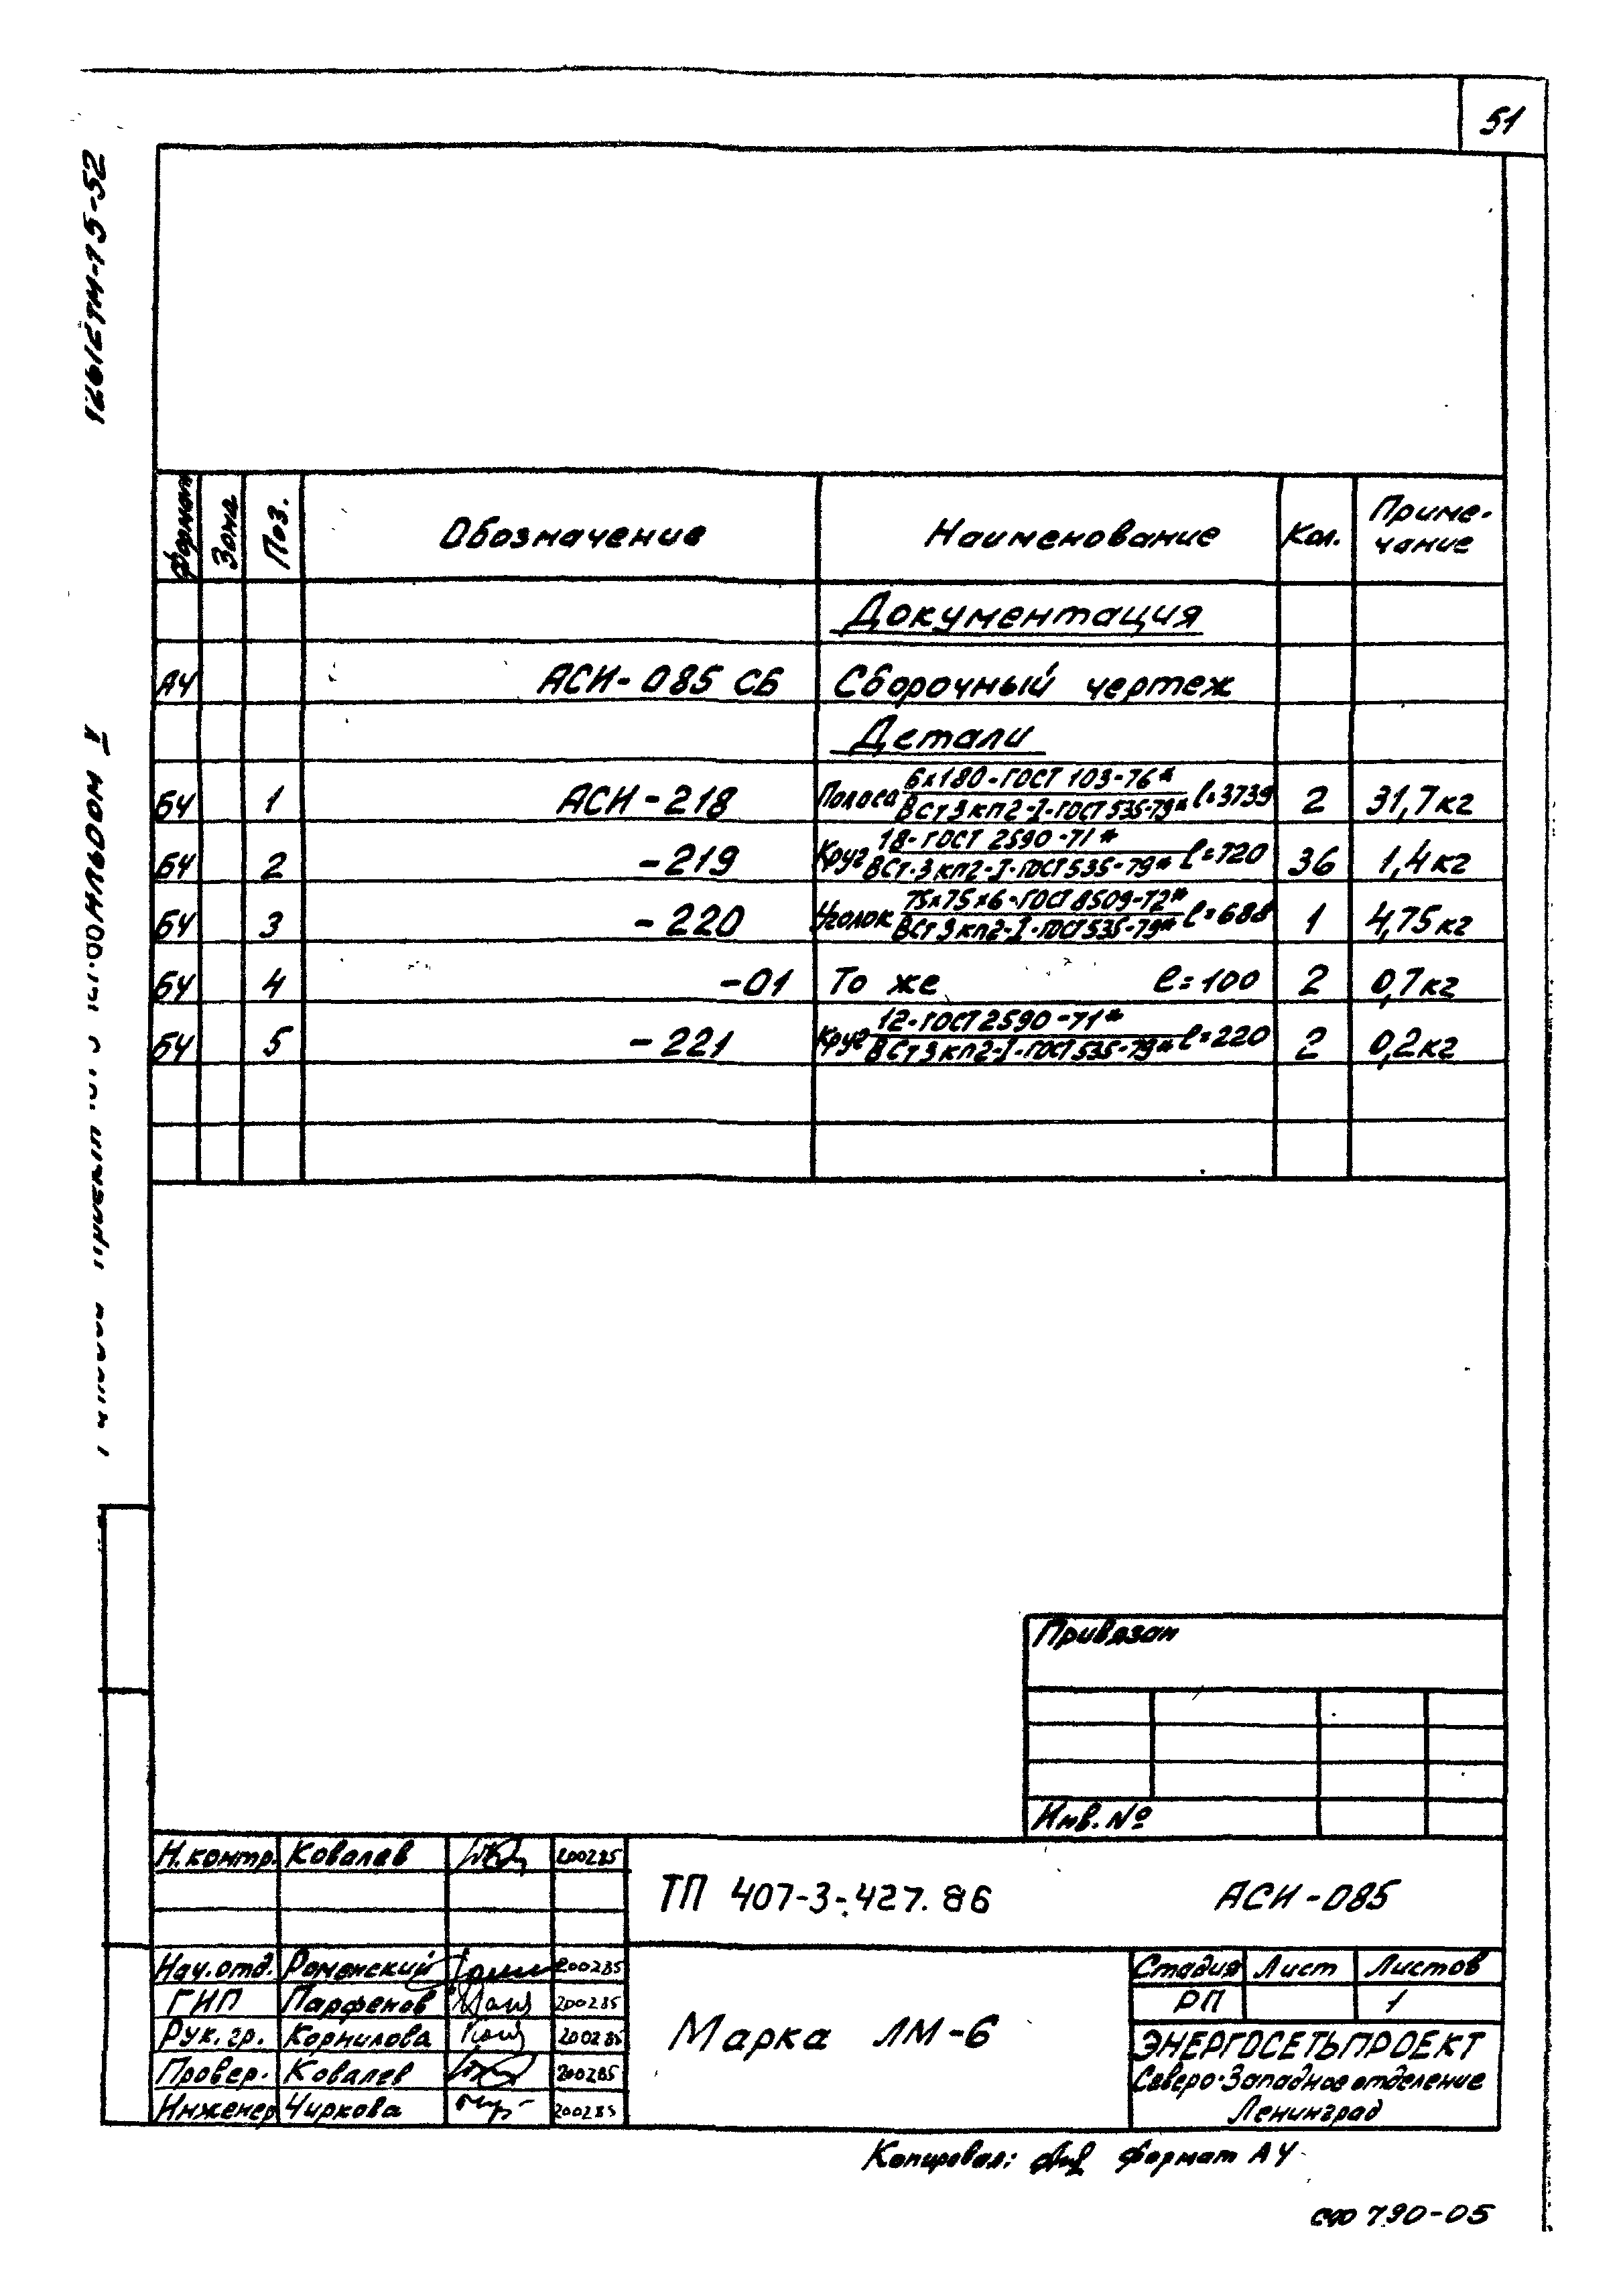 51
12612тм-т5-52
Формат Зона Поз. Обозначение Наименование Кол. Приме-
чание
Документация
А4 АСИ-085 СБ Сборочный чертеж
Детали
БЧ 1 АСИ-218 Полоса 6х180-ГОСТ 103-76* / ВСт3кп2-I-ГОСТ 535-79* l=3739 2 31,7кг
БЧ 2 -219 Круг 18-ГОСТ 2590-71* / ВСт.3кп2-I-ГОСТ 535-79* l=720 36 1,4кг
БЧ 3 -220 Уголок 75х75х6-ГОСТ 8509-72* / ВСт3кп2-I-ГОСТ 535-79* l=688 1 4,75кг
БЧ 4 -01 То же l=100 2 0,7кг
БЧ 5 -221 Круг 12-ГОСТ 2590-71* / ВСт3кп2-I-ГОСТ 535-79* l=220 2 0,2кг
Привязан
Инв. №
Н.контр. Ковалев 200285
ТП 407-3-427.86 АСИ-085
Нач.отд. Роменский 200285
ГИП Парфенов 200285
Рук. гр. Корнилова 200285
Провер. Ковалев 200285
Инженер Чиркова 200285
Марка ЛМ-6
Стадия Лист Листов
РП 1
ЭНЕРГОСЕТЬПРОЕКТ
Северо-Западное отделение
Ленинград
Копировал: Формат А4
сф 790-05